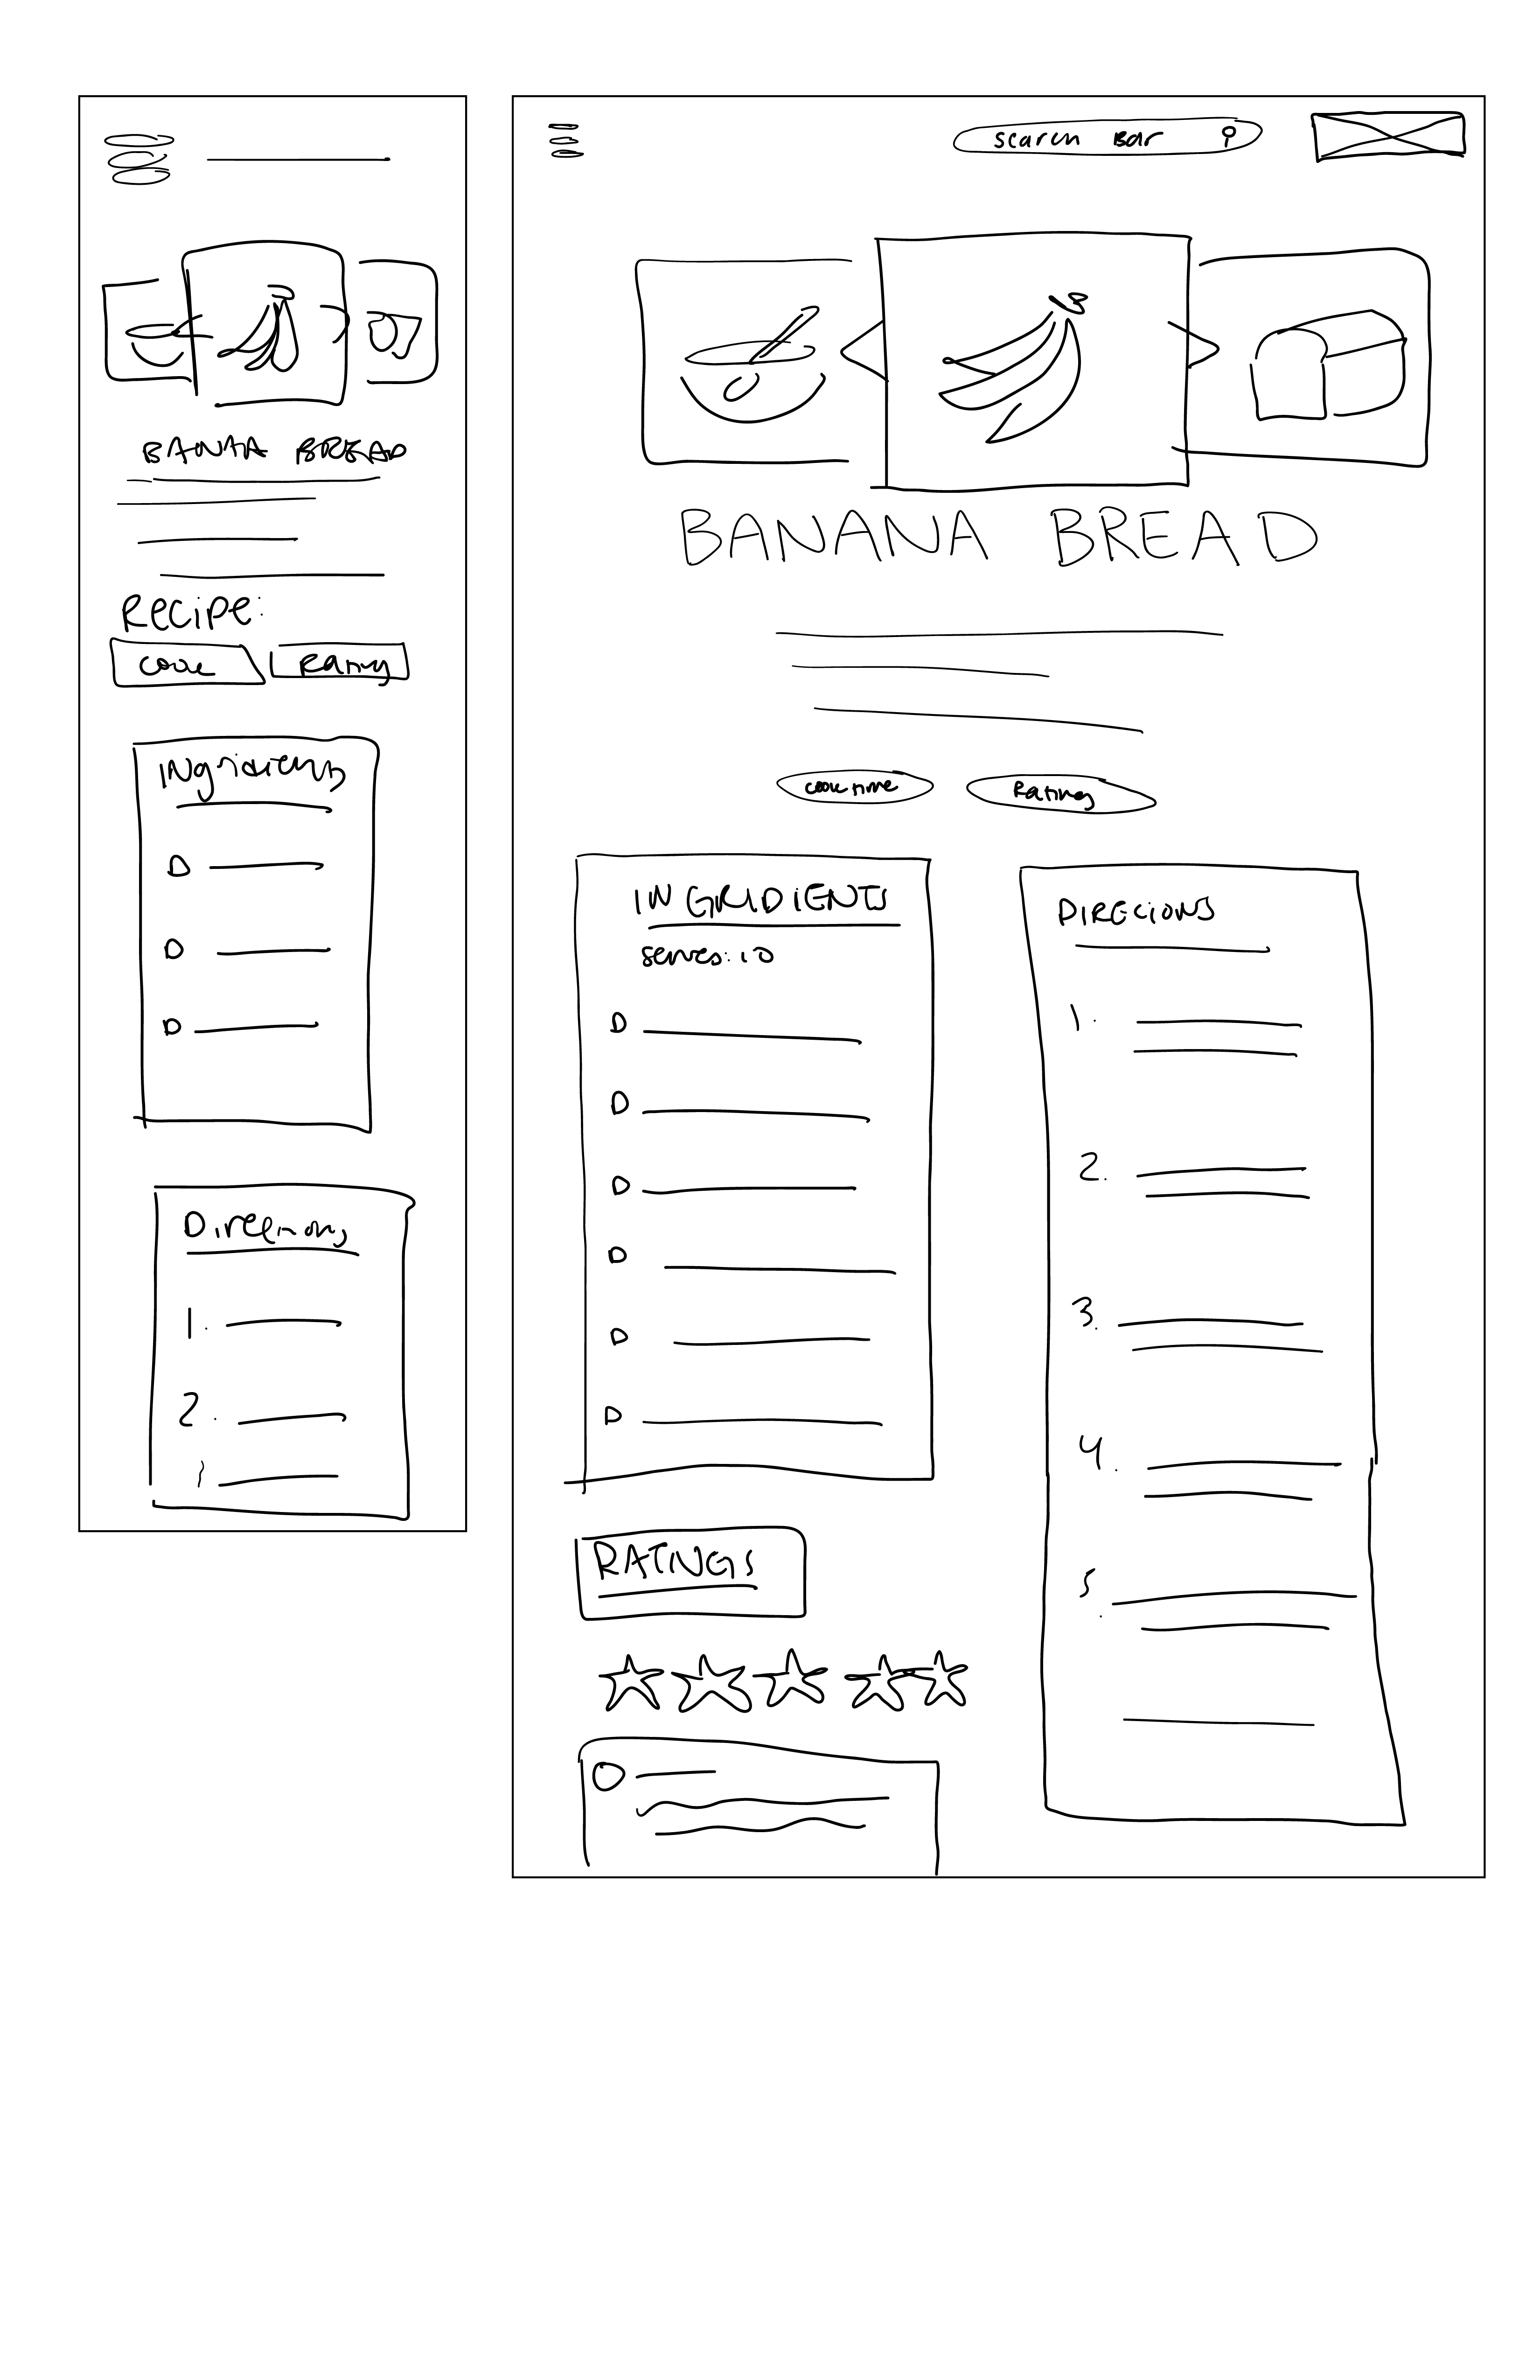 BANANA BREAD
RECIPE:
COOK
Rating
INgridients
Directions
1.
2.
search Bar
BANANA BREAD
cook time
Ratings
INGRIDIENTS
serves: 10
DIRECIONS
1.
2.
3.
4.
5.
RATINGS